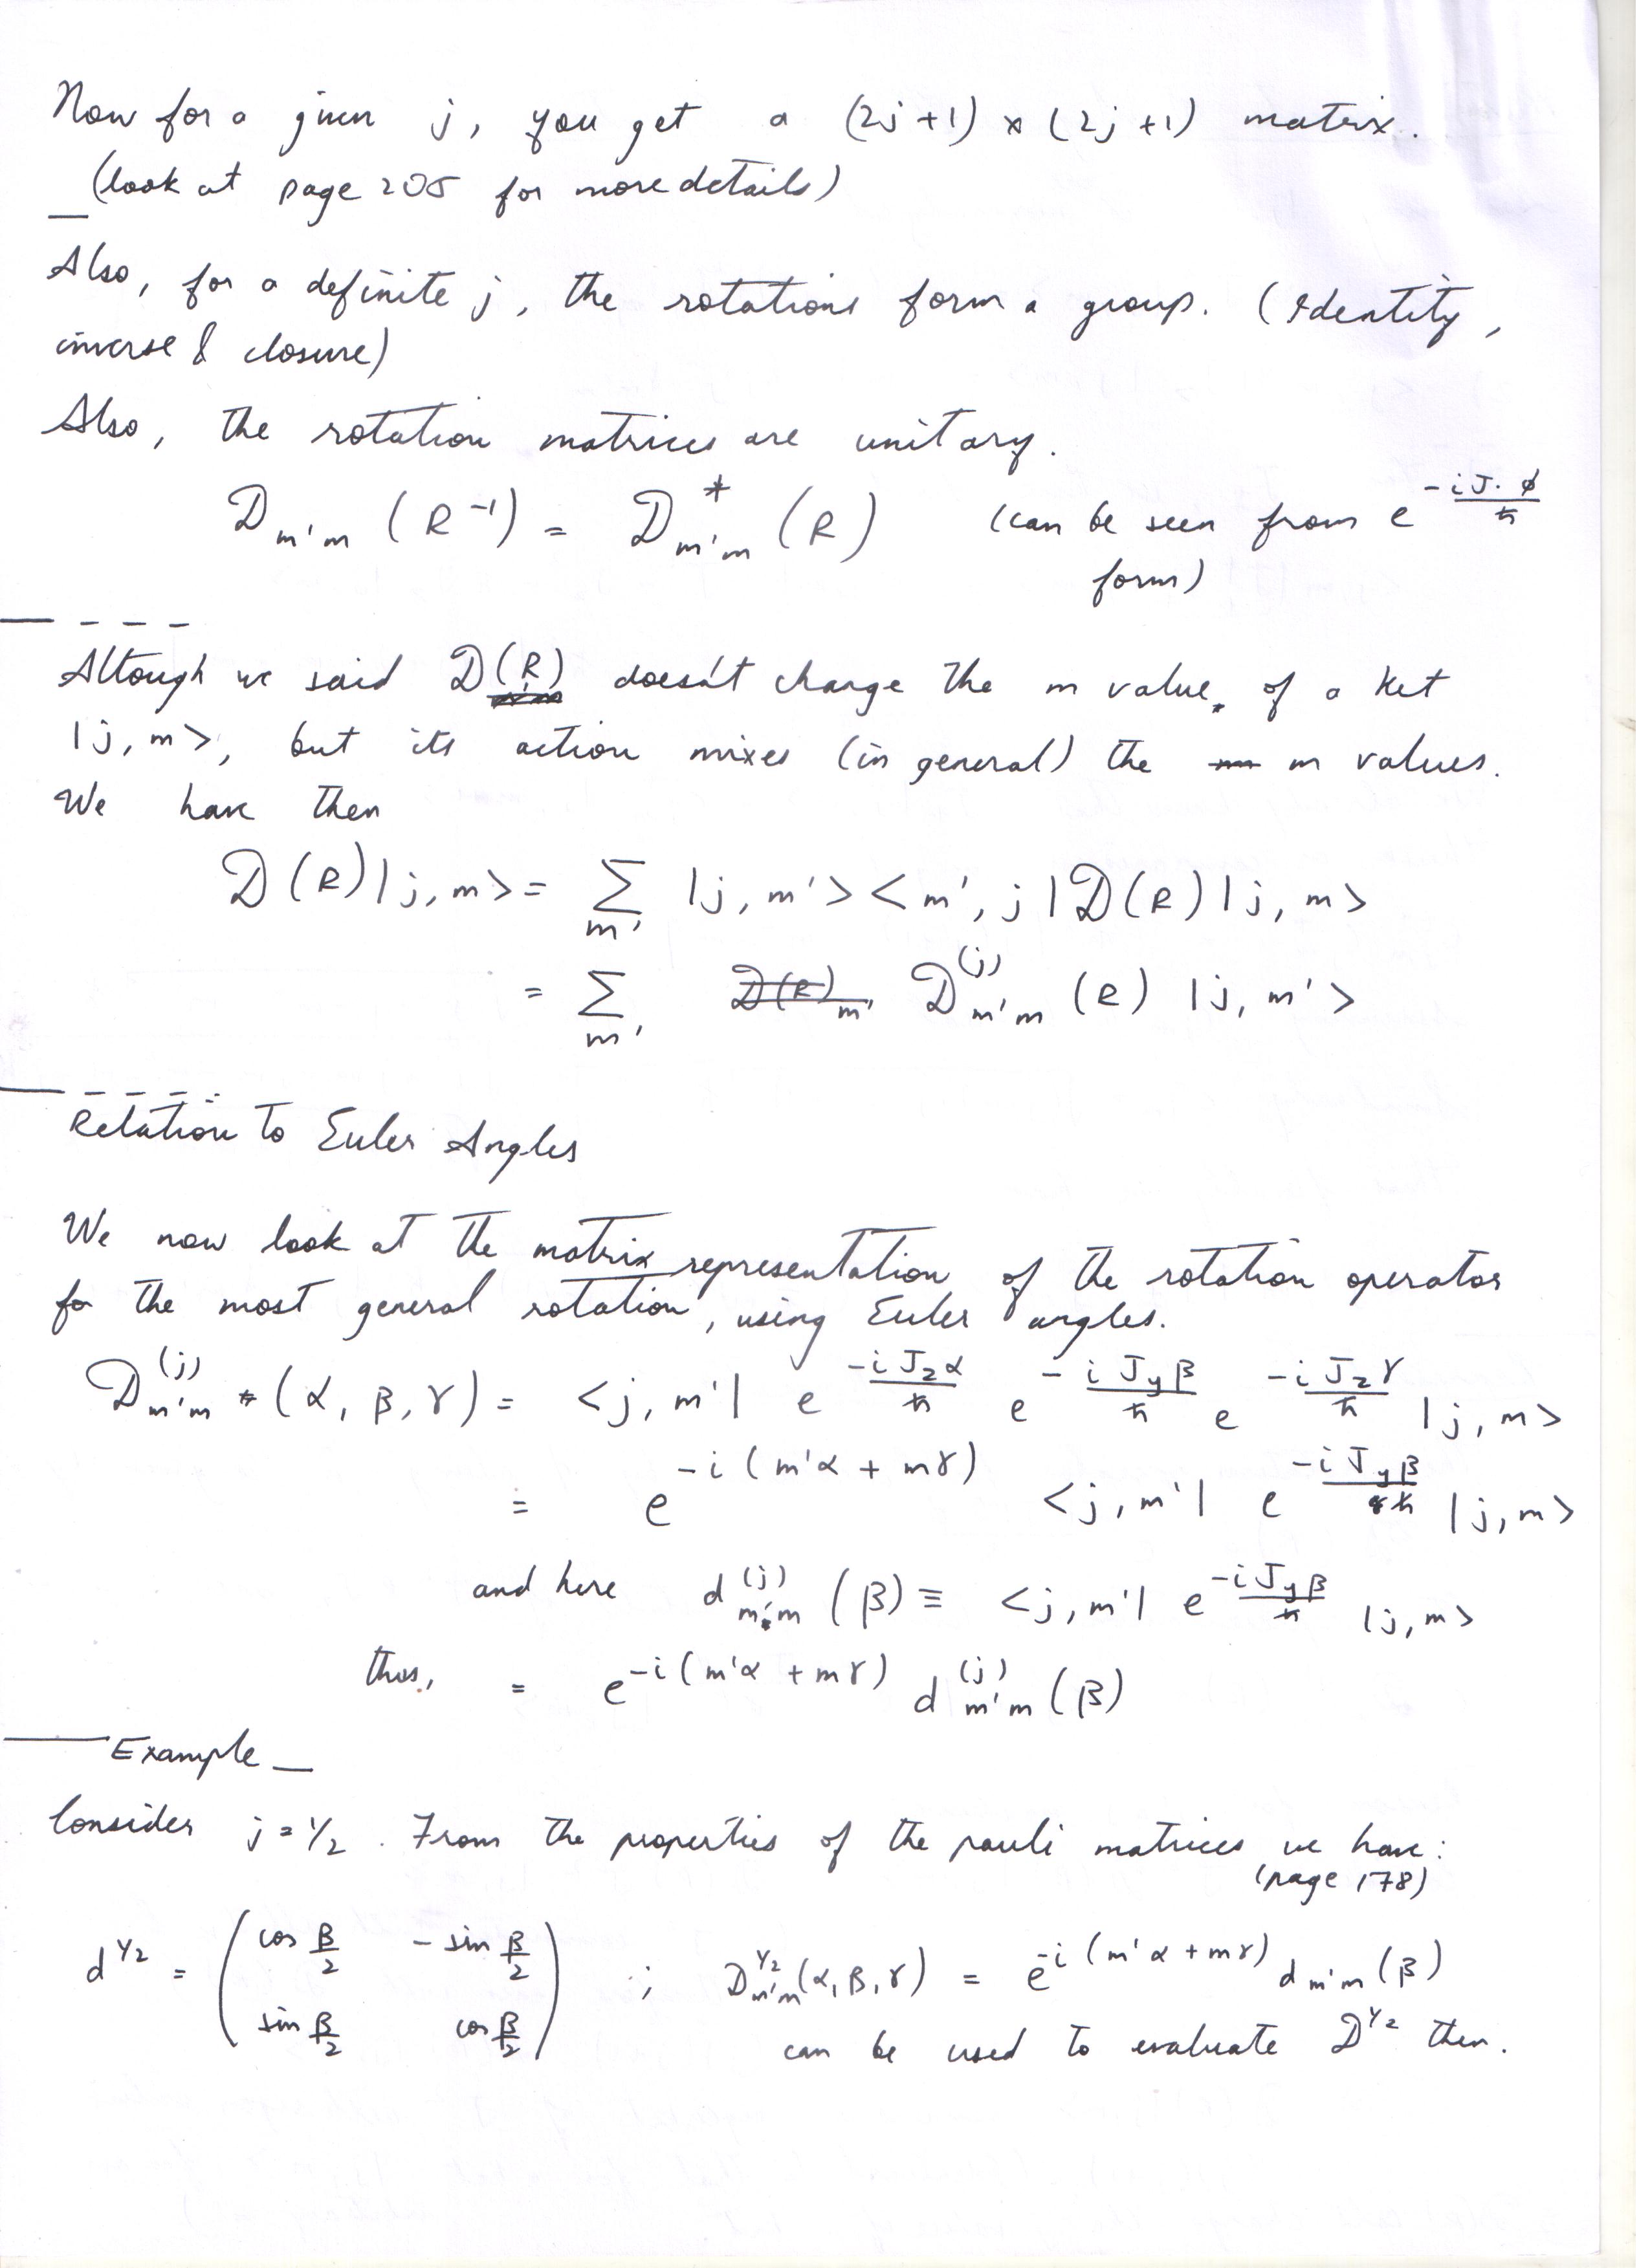 Now for a given j, you get a (2j+1) × (2j+1) matrix.
(look at page 205 for more details)
Also, for a definite j, the rotations form a group. (Identity,
inverse & closure)
Also, the rotation matrices are unitary.
𝒟_{m'm} (R^{-1}) = 𝒟^*_{m'm} (R) (can be seen from e^{-iJ·ϕ/ħ}
form)
Altough we said 𝒟(R) doesn't change the m value of a ket
|j, m>, but its action mixes (in general) the m values.
We have then
𝒟(R)|j, m> = Σ_{m'} |j, m'> <m', j|𝒟(R)|j, m>
= Σ_{m'} 𝒟^{(j)}_{m'm} (R) |j, m'>
Relation to Euler Angles
We now look at the matrix representation of the rotation operator
for the most general rotation, using Euler angles.
𝒟^{(j)}_{m'm} (α, β, γ) = <j, m'| e^{-iJ_zα/ħ} e^{-iJ_yβ/ħ} e^{-iJ_zγ/ħ} |j, m>
= e^{-i(m'α + mγ)} <j, m'| e^{-iJ_yβ/ħ} |j, m>
and here d^{(j)}_{m'm} (β) ≡ <j, m'| e^{-iJ_yβ/ħ} |j, m>
thus, = e^{-i(m'α + mγ)} d^{(j)}_{m'm} (β)
Example
Consider j = 1/2. From the properties of the pauli matrices we have:
(page 178)
d^{1/2} = ( cos β/2 - sin β/2 ; sin β/2 cos β/2 ) ; 𝒟^{1/2}_{m'm}(α, β, γ) = e^{-i(m'α + mγ)} d_{m'm}(β)
can be used to evaluate 𝒟^{1/2} then.